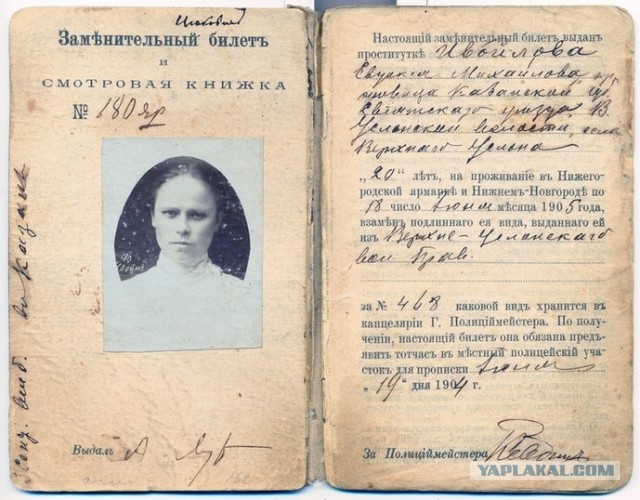 Замѣнительный билетъ
и
СМОТРОВАЯ КНИЖКА
№ 180 яр
Выдалъ
Настоящій замѣнительный билетъ выданъ
проституткѣ Ивойлова
Евдокія Михайлова
Казанской губ.
Свіяжскаго уѣзда, В.
Услонской волости, села
Верхняго Услона
„20“ лѣтъ, на проживаніе въ Нижего-
родской ярмаркѣ и Нижнемъ-Новгородѣ по
18 число Іюня мѣсяца 1905 года,
взамѣнъ подлиннаго ея вида, выданнаго ей
изъ Верхне-Услонскаго
вол Прав.
за № 468 каковой видъ хранится въ
канцеляріи Г. Полиціймейстера. По полу-
ченіи, настоящій билетъ она обязана предъ-
явить тотчасъ въ мѣстный полицейскій уча-
стокъ для прописки Іюня
„19“ дня 1904 г.
За Полиціймейстера
YAPLAKAL.COM